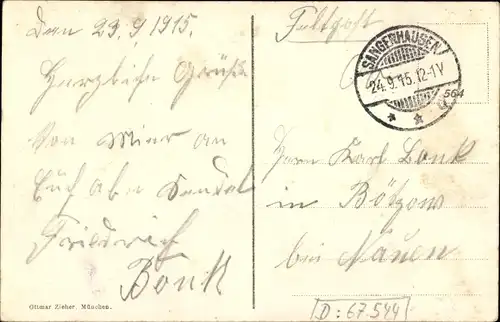 Den 23.9 1915.
Herzliche Grüße
Von Mier an
Euch aben sendet
Friedrich
Bonk
Ottmar Zieher, München.
Feldpost
SANGERHAUSEN
24.9.15.12-1V
* *
564
Herrn Karl Bonk
in Bötzow
bei Nauen
D: 67.544